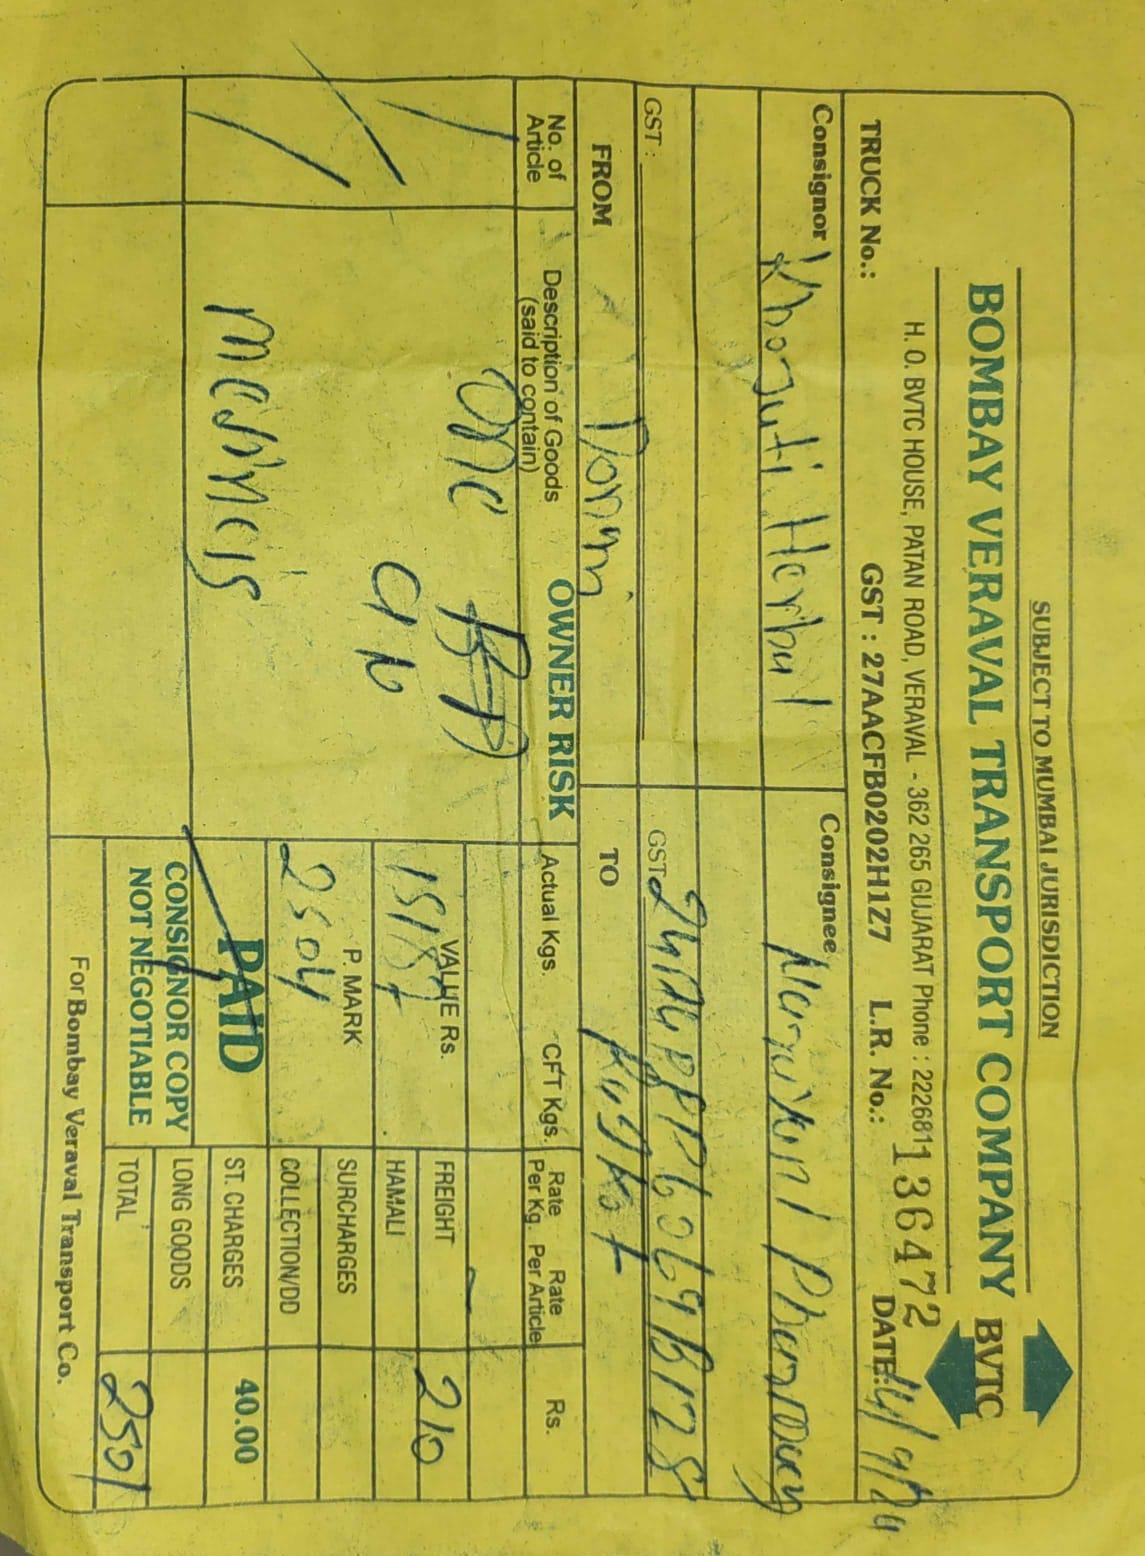 SUBJECT TO MUMBAI JURISDICTION
BOMBAY VERAVAL TRANSPORT COMPANY BVTC
H. O. BVTC HOUSE, PATAN ROAD, VERAVAL - 362 265 GUJARAT Phone : 2226811
136472
TRUCK No.: GST : 27AACFB0202H1Z7 L.R. No.: DATE: 14/9/24
Consignor Herbal Consignee
GST : GST
FROM TO Rajkot
No. of Article Description of Goods (said to contain) OWNER RISK Actual Kgs. CFT Kgs. Rate Per Kg. Rate Per Article Rs.
one
VALUE Rs. FREIGHT 210
HAMALI
P. MARK SURCHARGES
2504 COLLECTION/DD
PAID ST. CHARGES 40.00
CONSIGNOR COPY LONG GOODS
NOT NEGOTIABLE TOTAL 250/
For Bombay Veraval Transport Co.